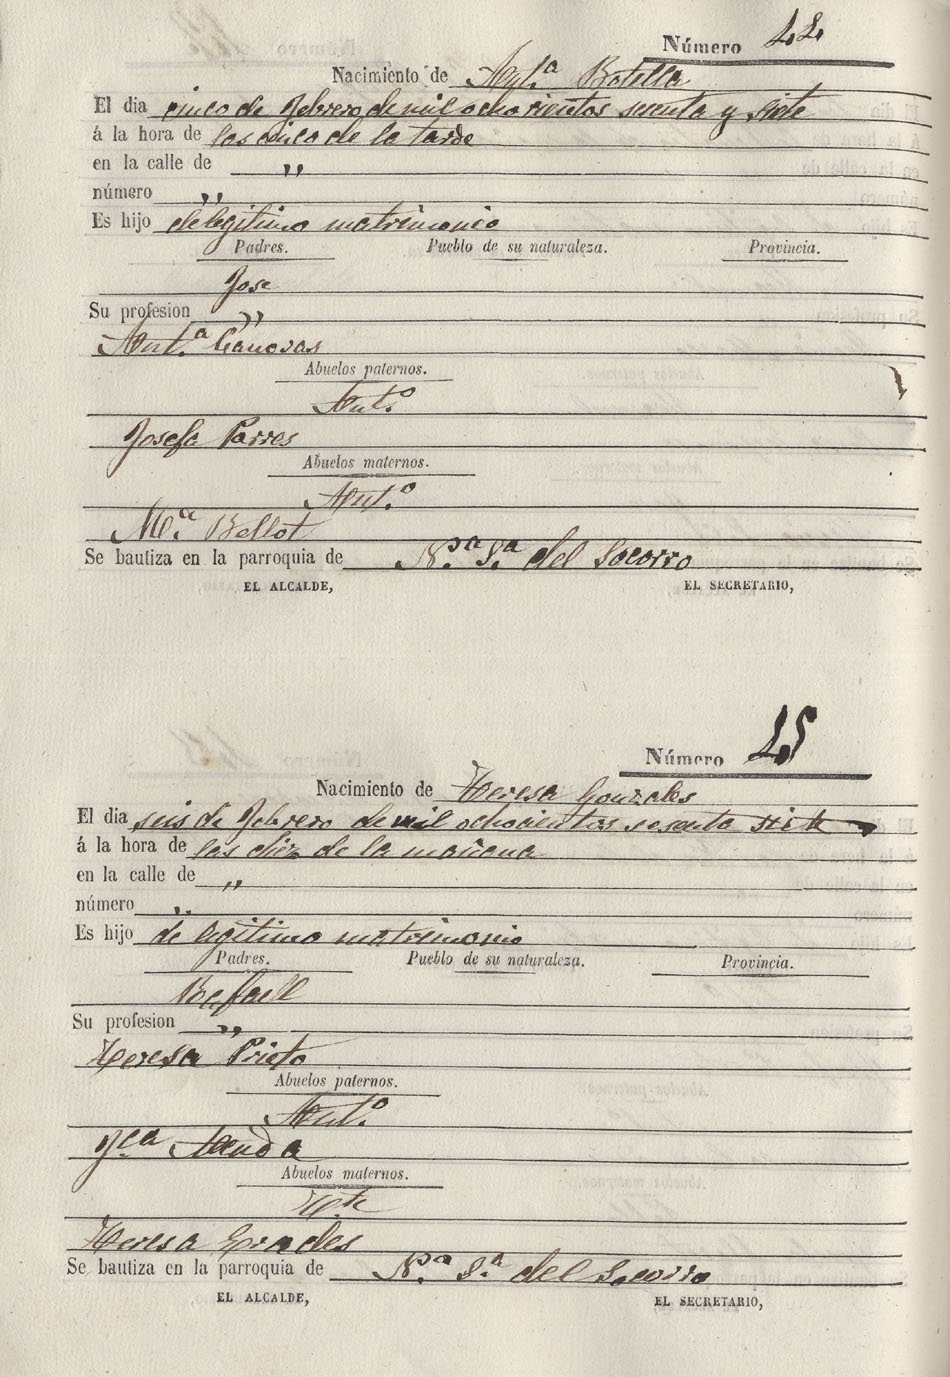 Número 44
Nacimiento de Ant.ª Botella
El dia cinco de Febrero de mil ochocientos sesenta y siete
á la hora de las cinco de la tarde
en la calle de „
número „
Es hijo de legitimo matrimonio
Padres. Pueblo de su naturaleza. Provincia.
Jose
Su profesion „
Ant.ª Canovas
Abuelos paternos.
Ant.º
Josefa Parres
Abuelos maternos.
Ant.º
M.ª Bellot
Se bautiza en la parroquia de N.ª S.ª del Socorro
EL ALCALDE, EL SECRETARIO,
Número 45
Nacimiento de Teresa Gonzales
El dia seis de Febrero de mil ochocientos sesenta siete
á la hora de las diez de la mañana
en la calle de „
número „
Es hijo de legitimo matrimonio
Padres. Pueblo de su naturaleza. Provincia.
Rafaell
Su profesion „
Teresa Prieto
Abuelos paternos.
Ant.º
F.ca
Abuelos maternos.
Teresa Grades
Se bautiza en la parroquia de N.ª S.ª del Socorro
EL ALCALDE, EL SECRETARIO,